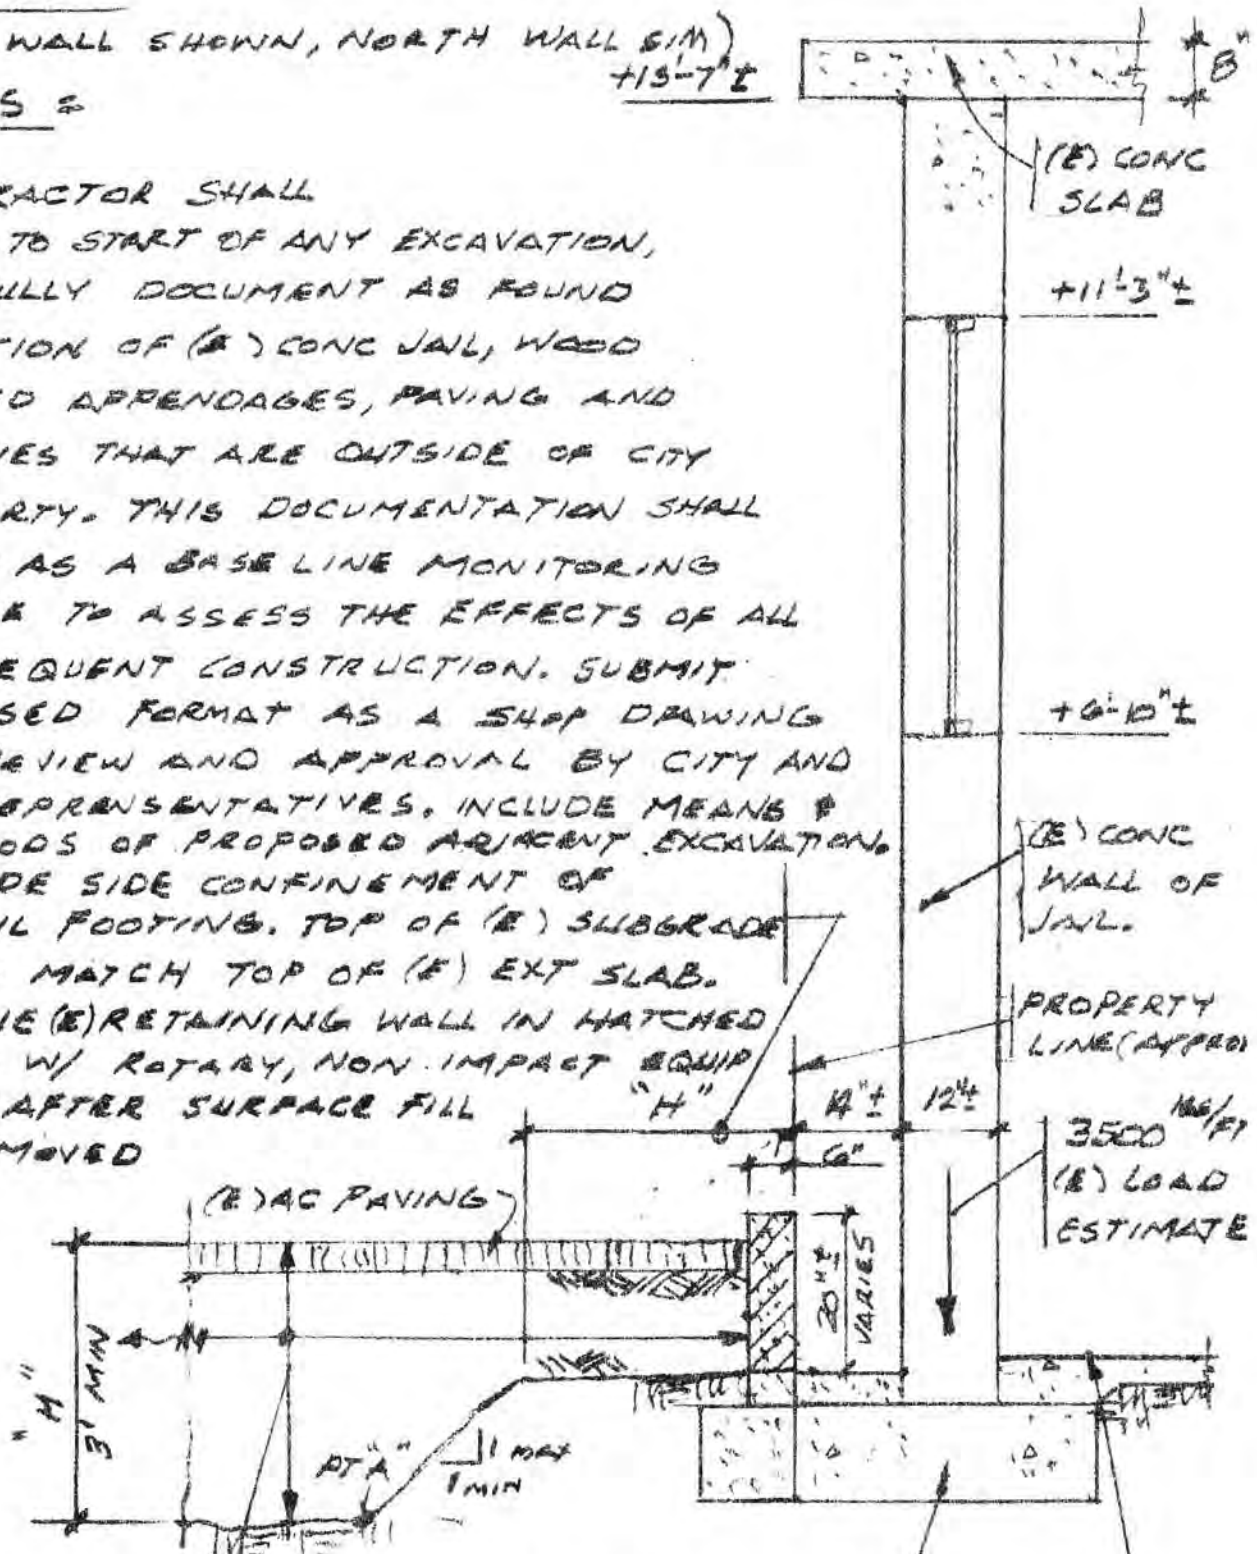 WALL SHOWN, NORTH WALL SIM)
+13'-7"±
8"
S =
(E) CONC
SLAB
RACTOR SHALL
TO START OF ANY EXCAVATION,
ULLY DOCUMENT AS FOUND
TION OF (E) CONC JAIL, WOOD
D APPENDAGES, PAVING AND
IES THAT ARE OUTSIDE OF CITY
RTY. THIS DOCUMENTATION SHALL
AS A BASE LINE MONITORING
E TO ASSESS THE EFFECTS OF ALL
EQUENT CONSTRUCTION. SUBMIT
SED FORMAT AS A SHOP DRAWING
EVIEW AND APPROVAL BY CITY AND
EPRENSENTATIVES. INCLUDE MEANS &
ODS OF PROPOSED ADJACENT EXCAVATION.
DE SIDE CONFINEMENT OF
IL FOOTING. TOP OF (E) SUBGRADE
MATCH TOP OF (E) EXT SLAB.
NE (E) RETAINING WALL IN HATCHED
W/ ROTARY, NON IMPACT EQUIP
AFTER SURFACE FILL
MOVED
+11'-3"±
+6'-10"±
(E) CONC
WALL OF
JAIL.
PROPERTY
LINE (APPRO
"H"
14"±
12"±
6"
3500 lbs/FT
(E) LOAD
ESTIMATE
(E) AC PAVING
20"±
VARIES
= "H"
3' MIN
PT "A"
1 MAX
1 MIN